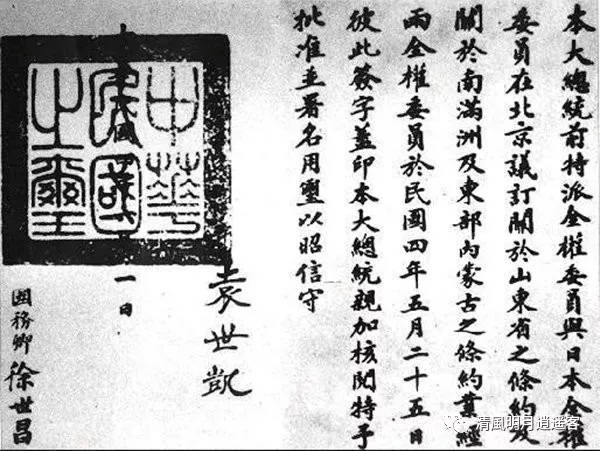 本大總統前特派全權委員與日本全權
委員在北京議訂關於山東省之條約及
關於南滿洲及東部內蒙古之條約業經
兩全權委員於民國四年五月二十五日
彼此簽字蓋印本大總統親加核閱特予
批准並署名用璽以昭信守
袁世凱
中華民國之璽
一日
國務卿徐世昌
清風明月逍遥客